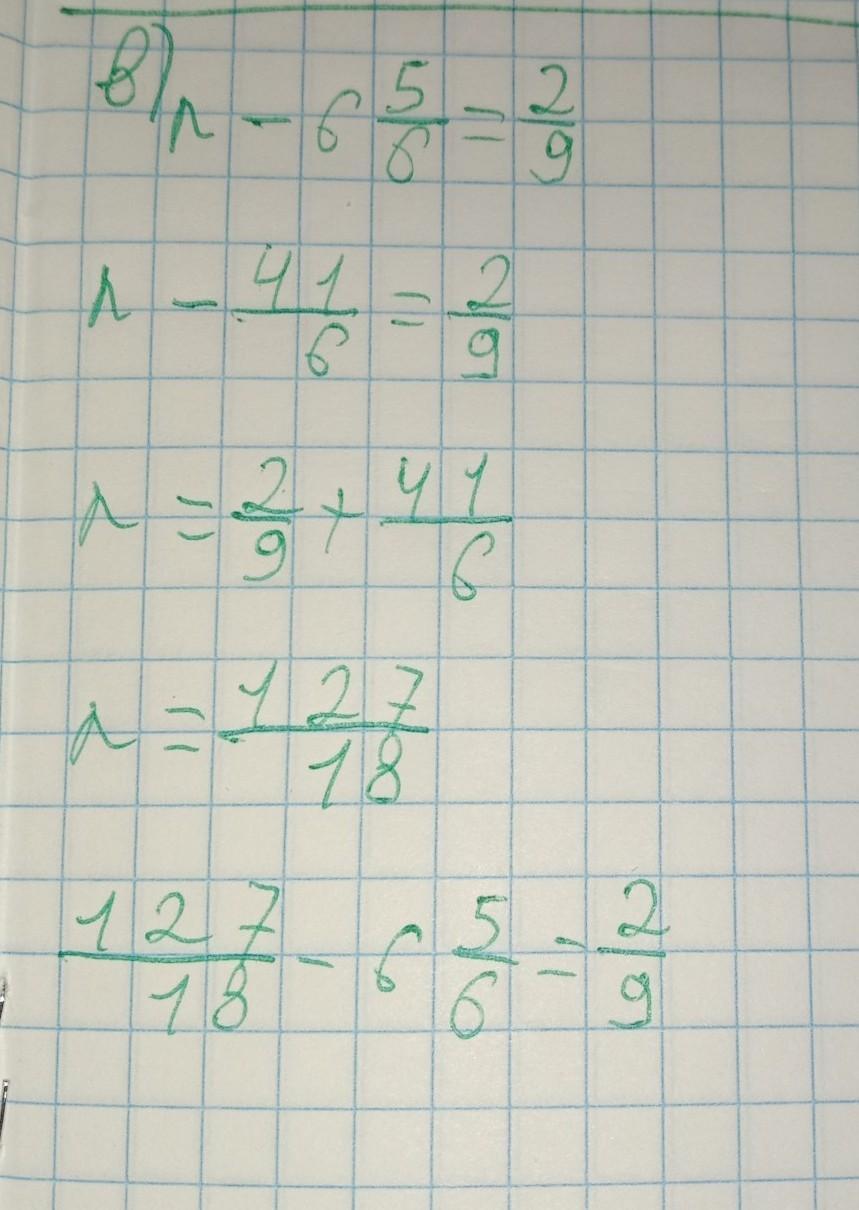 в) n - 6 5/6 = 2/9
n - 41/6 = 2/9
n = 2/9 + 41/6
n = 127/18
127/18 - 6 5/6 = 2/9